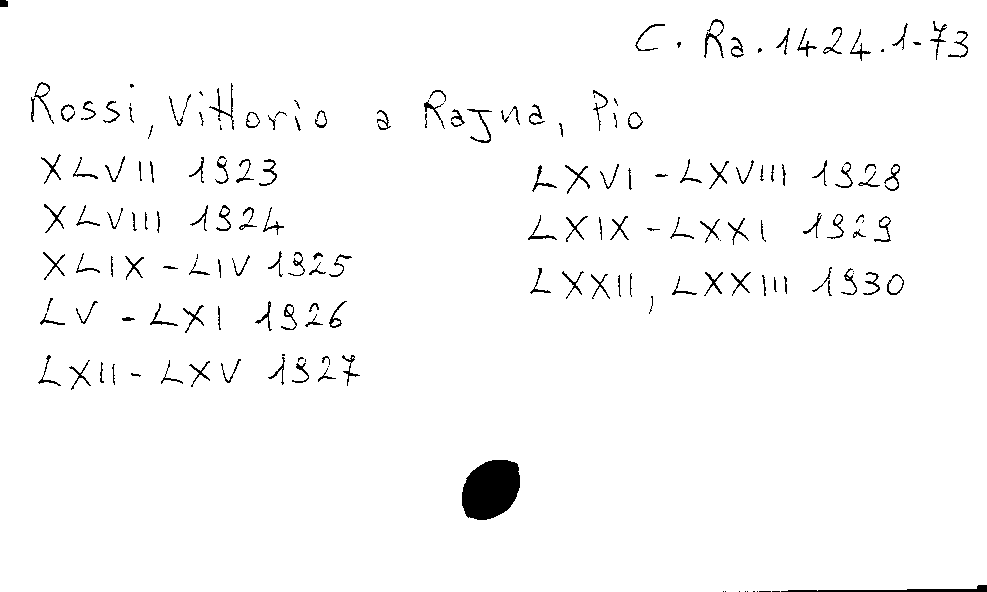 C. Ra. 1424.1-73
Rossi, Vittorio a Rajna, Pio
XLVII 1923
XLVIII 1924
XLIX - LIV 1925
LV - LXI 1926
LXII - LXV 1927
LXVI - LXVIII 1928
LXIX - LXXI 1929
LXXII, LXXIII 1930